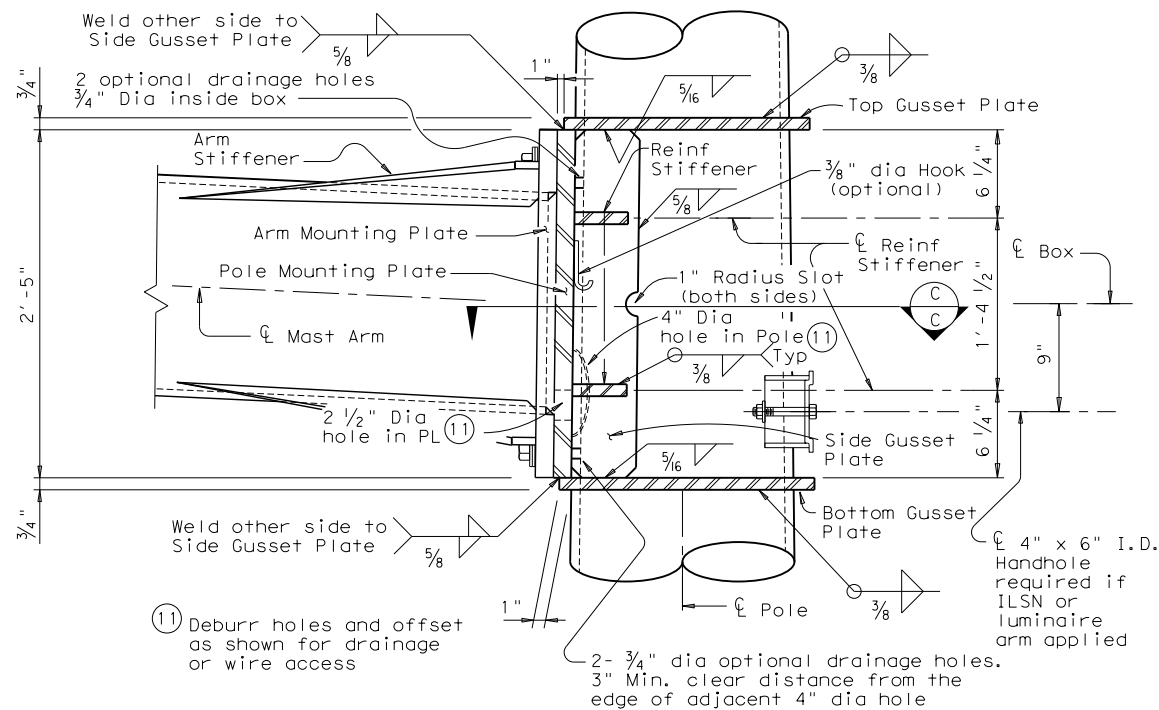 Weld other side to
Side Gusset Plate
5/8
3/4"
2 optional drainage holes
3/4" Dia inside box
1"
5/16
3/8
Top Gusset Plate
Arm
Stiffener
Reinf
Stiffener
3/8" dia Hook
(optional)
6 1/4"
5/8
Arm Mounting Plate
℄ Reinf
Stiffener
℄ Box
Pole Mounting Plate
1" Radius Slot
(both sides)
C
C
2'-5"
1'-4 1/2"
4" Dia
hole in Pole 11
℄ Mast Arm
Typ
3/8
9"
2 1/2" Dia
hole in PL 11
Side Gusset
Plate
5/16
6 1/4"
3/4"
Weld other side to
Side Gusset Plate
5/8
Bottom Gusset
Plate
℄ 4" x 6" I.D.
Handhole
required if
ILSN or
luminaire
arm applied
1"
℄ Pole
3/8
11 Deburr holes and offset
as shown for drainage
or wire access
2- 3/4" dia optional drainage holes.
3" Min. clear distance from the
edge of adjacent 4" dia hole